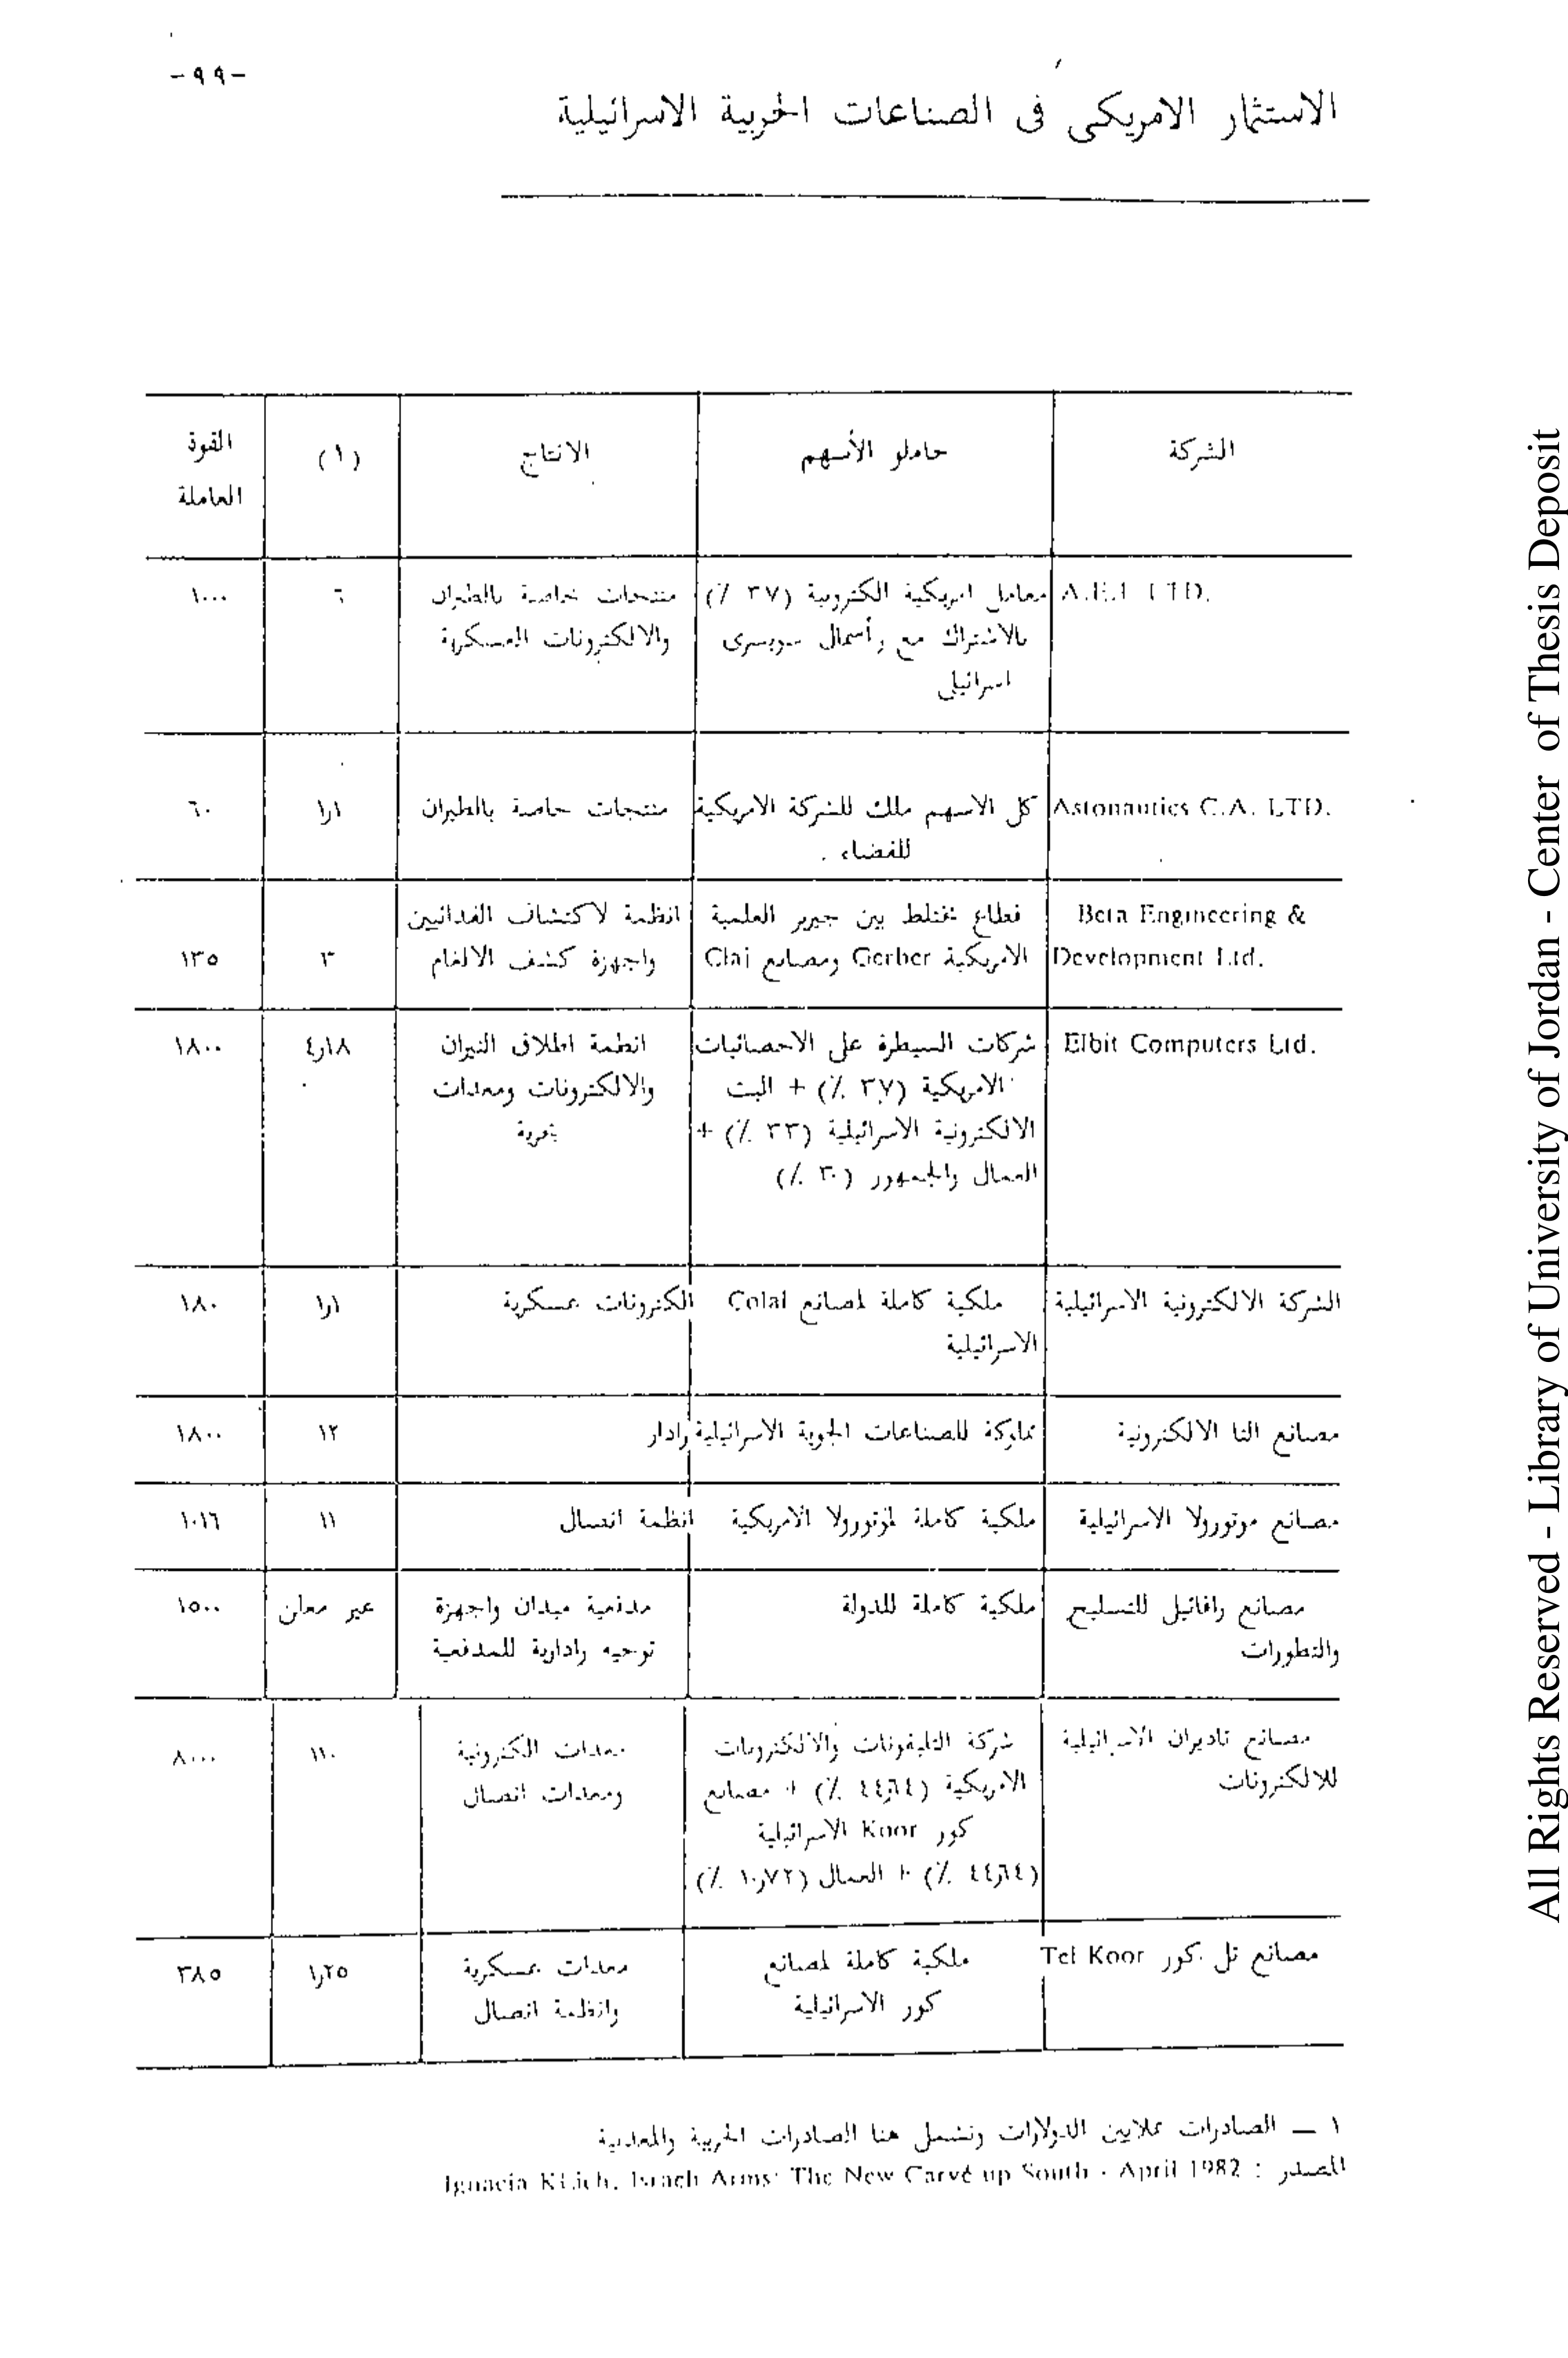 -٩٩-
الاستثمار الامريكى فى الصناعات الحربية الاسرائيلية
الشركة
حاملو الأسهم
الانتاج
(١)
القوة
العاملة
LTD.
معامل امريكية الكترونية (٣٧ ٪)
بالاشتراك مع رأسمال سويسرى
اسرائيلى
منتجات خاصة بالطيران
والالكترونات العسكرية
٦
١٠٠٠
Astonautics C.A. LTD.
كل الاسهم ملك للشركة الامريكية
للفضاء .
منتجات خاصة بالطيران
١ر١
٦٠
Beta Engineering &
Development Ltd.
قطاع مختلط بين جيربر العلمية
الامريكية Gerber ومصانع Clai
انظمة لاكتشاف الفدائيين
واجهزة كشف الالغام
٣
١٣٥
Elbit Computers Ltd.
شركات السيطرة على الاحصائيات
الامريكية (٣٧ ٪) + البت
الالكترونية الاسرائيلية (٣٣ ٪) +
العمال والجمهور (٣٠ ٪)
انظمة اطلاق النيران
والالكترونات ومعدات
بحرية
٤ر١٨
١٨٠٠
الشركة الالكترونية الاسرائيلية
ملكية كاملة لمصانع Colal
الاسرائيلية
الكترونات عسكرية
١ر١
١٨٠
مصانع التا الالكترونية
مملوكة للصناعات الجوية الاسرائيلية
رادار
١٢
١٨٠٠
مصانع موتورولا الاسرائيلية
ملكية كاملة لموتورولا الامريكية
انظمة اتصال
١١
١٠١٦
مصانع رافائيل للتسليح
والتطورات
ملكية كاملة للدولة
مدفعية ميدان واجهزة
توجيه رادارية للمدفعية
غير معلن
١٥٠٠
مصانع تاديران الاسرائيلية
للالكترونات
شركة التليفونات والالكترونات
الامريكية (٤٤ر٦٤ ٪) + مصانع
كور Koor الاسرائيلية
(٤٤ر٦٤ ٪) + العمال (١٠ر٧٢ ٪)
معدات الكترونية
ومعدات اتصال
١١٠
٨٠٠٠
مصانع تل كور Tel Koor
ملكية كاملة لمصانع
كور الاسرائيلية
معدات عسكرية
وانظمة اتصال
١ر٢٥
٣٨٥
١ — الصادرات بملايين الدولارات وتشمل هنا الصادرات الحربية والمعدنية
المصدر : Ignacia Klich, Israeli Arms: The New Carve up South - April 1982
All Rights Reserved - Library of University of Jordan - Center of Thesis Deposit